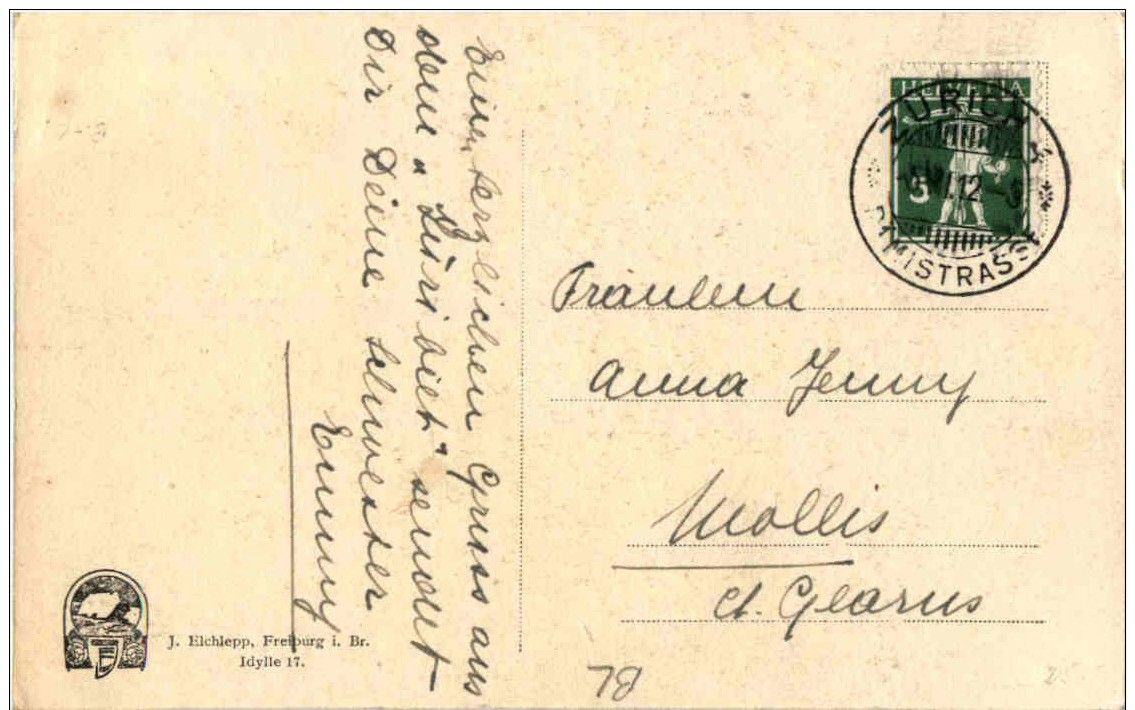 Einen herzlichen Gruss aus
dem „Züribiet“ sendet
Dir Deine Schwester
Emmy
HELVETIA
5
ZÜRICH
VI.12
Fräulein
Anna Jenny
Mollis
Ct. Glarus
J. Elchlepp, Freiburg i. Br.
Idylle 17.
78